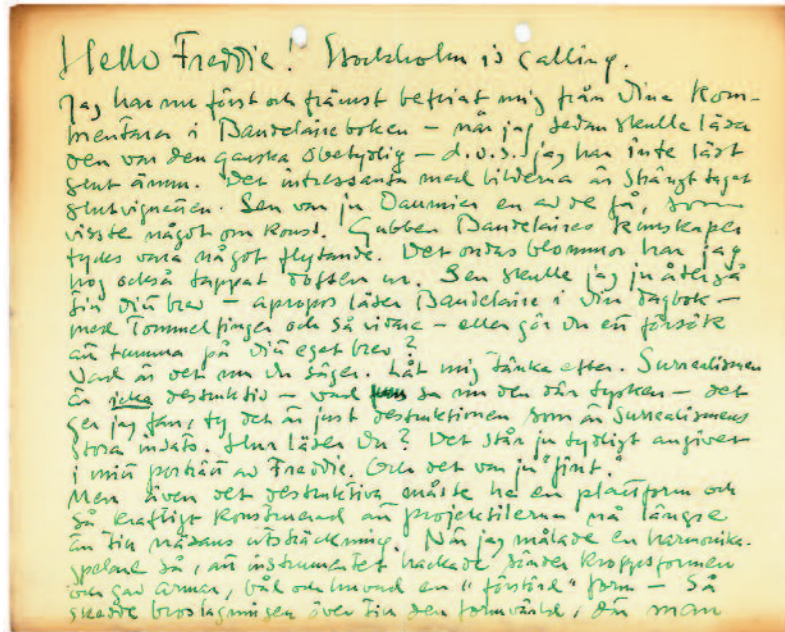 Hello Freddie! Stockholm is calling.
Jag har nu först och främst befriat mig från Dina Kom-
mentarer i Baudelaireboken – när jag sedan skulle läsa
den var den ganska obetydlig – d.v.s. jag har inte läst
slut ännu. Det intressanta med bilderna är strängt taget
slutvignetten. Sen var ju Daumier en av de få, som
visste något om konst. Gubben Baudelaires kunskaper
tycks vara något flytande. Det ondas blommor har jag
nog också tappat doften ur. Sen skulle jag ju återgå
till ditt brev – apropos läsa Baudelaire i din dagbok –
med Tommelfinger och så vidare – eller gör du ett försök
att tumma på ditt eget brev?
Vad är det nu du säger. Låt mig tänka efter. Surrealismen
är icke destruktiv – vad sa nu den där tysken – det
ger jag fan, ty det är just destruktionen som är Surrealismens
stora insats. Hur läser du? Det står ju tydligt angivet
i mitt porträtt av Freddie. Och det var ju "fint."
Men även det destruktiva måste ha en plattform och
så kraftigt konstruerad att projektilerna nå längre
än till näsans utsträckning. När jag målade en harmonika-
spelare så, att instrumentet hackade sönder kroppsformen
och gav armar, bål och huvud en "förstörd" form – Så
skedde broslagningen över till den formvärld, där man